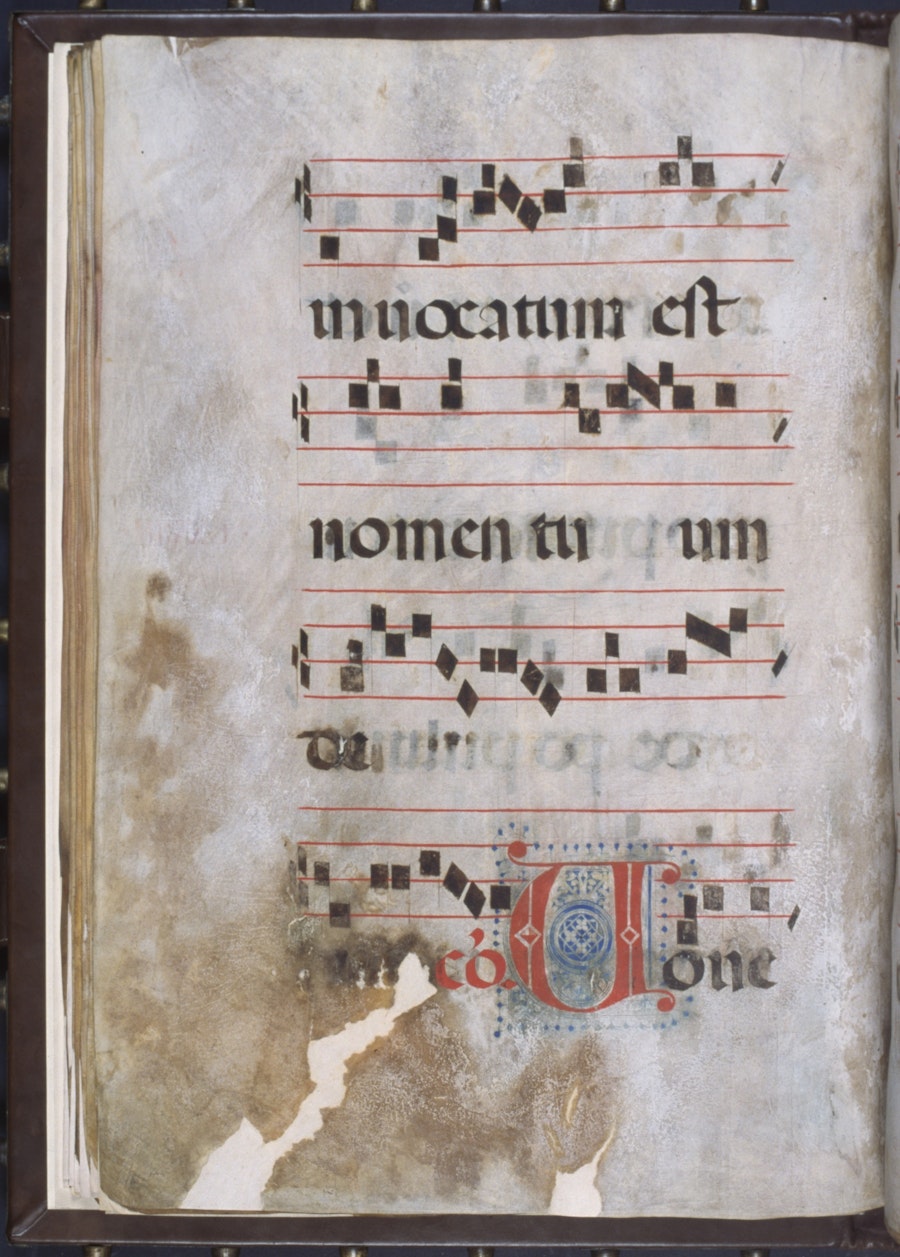 inuocatum est
nomen tu um
de
có. Uoue